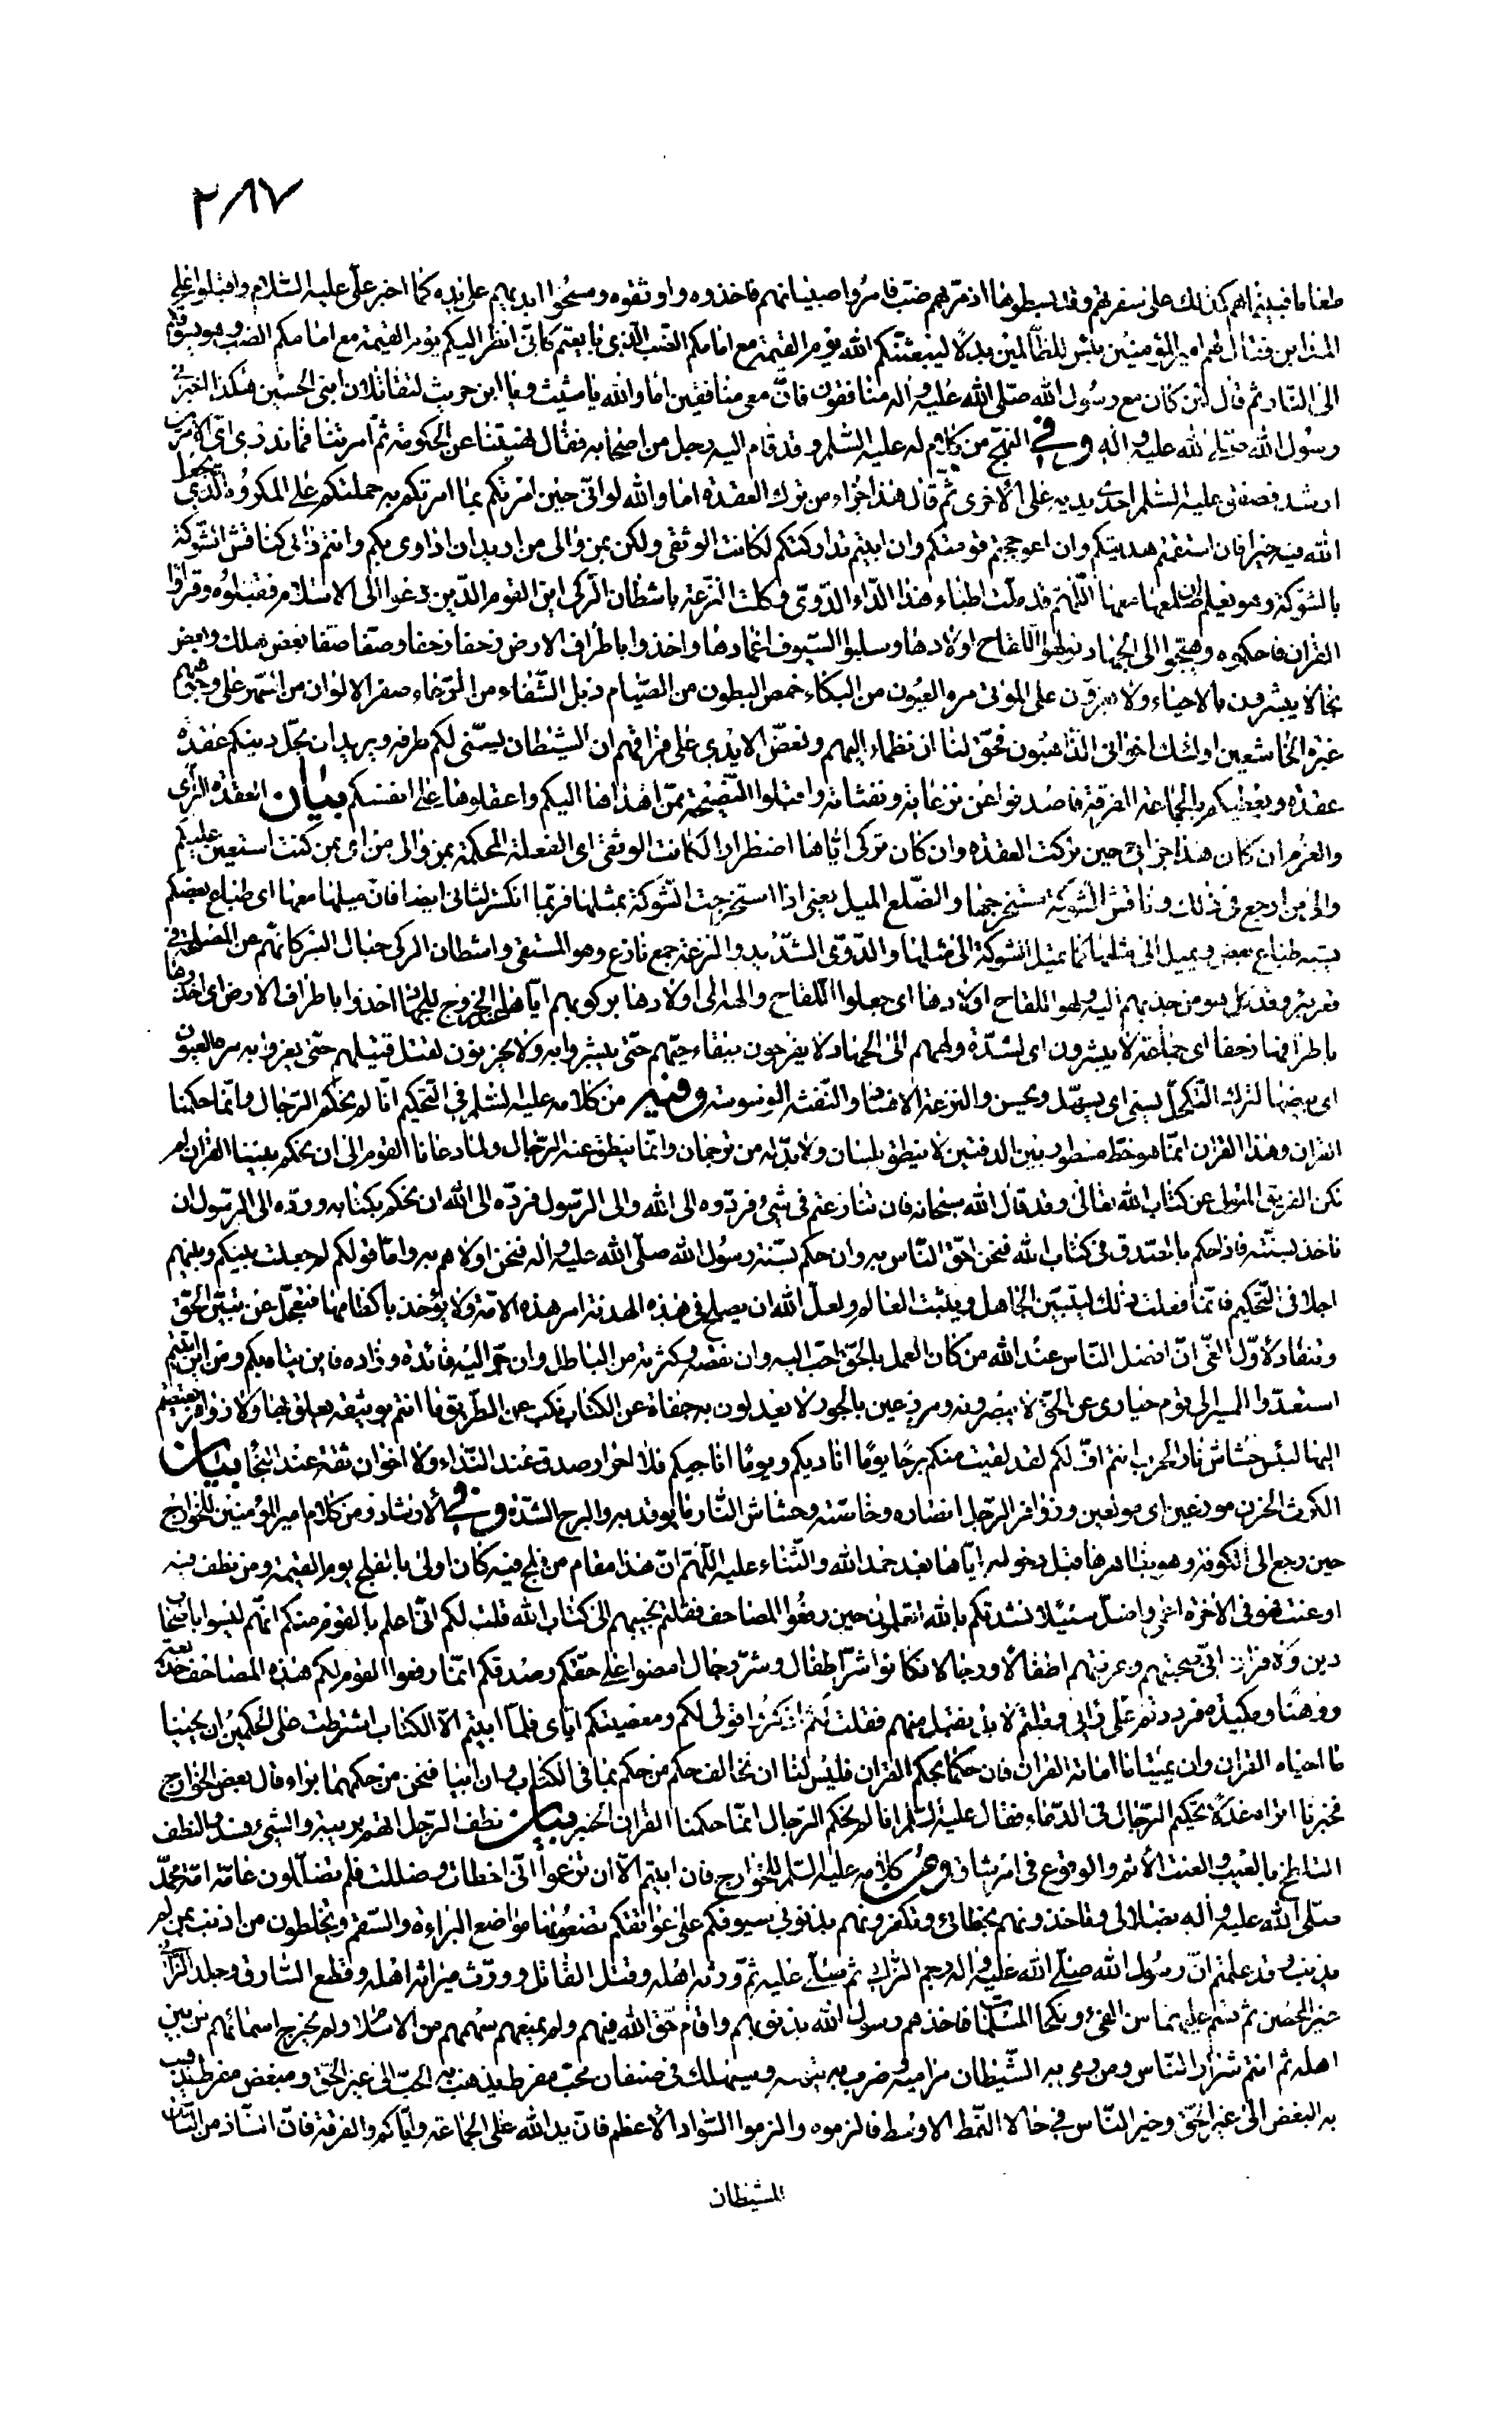 ٢٨٧
طعاما فبيناهم كذلك على سفرتهم وقد بسطوها اذ مرّ بهم ضبّ فامروا صبيانهم فاخذوه واوثقوه ومسحوا ايديهم على يده كما اخبر علىّ عليه السّلام واقبلوا على
المدائن فقال لهم امير المؤمنين بئس للظّالمين بدلا ليبعثنّكم الله يوم القيمة مع امامكم الضّب الّذى بايعتم كانّى انظر اليكم يوم القيمة مع امامكم الضب وهو يسوقكم
الى النّار ثم قال لئن كان مع رسول الله صلّى الله عليه واله منافقون فانّ معى منافقين اما والله يا شيث ويا ابن حريث لتقاتلان ابنى الحسين هكذا اخبرنى
رسول الله صلّى الله عليه واله وفى النهج من كلام له عليه السّلم وقد قام اليه رجل من اصحابه فقال نهيتنا عن الحكومة ثم امرتنا فما ندرى اىّ الامرين
ارشد فصفق عليه السّلم احدى يديه على الأخرى ثم قال هذا جزاء من ترك العقدة اما والله لو انّى حين امرتكم بما امرتكم به حملتكم على المكروه الّذى يجعل
الله فيه خيرا فان استقمتم هديتكم وان اعوججتم قومتكم وان ابيتم تداركتكم لكانت الوثقى ولكن بمن والى من اريد ان اداوى بكم وانتم دائى كناقش الشّوكة
بالشوكة وهو يعلم ان ضلعها معها اللّهم قد ملّت اطبّاء هذا الدّاء الدّوىّ وكلّت النزعة باشطان الرّكى اين القوم الّذين دعوا الى الاسلام فقبلوه وقراوا
القران فاحكموه وهيّجوا الى الجهاد فولهوا اللقاح اولادها وسلبوا السّيوف اغمادها واخذوا باطراف الارض زحفا زحفا وصفّا صفّا بعض هلك وبعض
نجا لا يبشرون بالاحياء ولا يعزون على الموتى مره العيون من البكاء خمص البطون من الصّيام ذبل الشّفاه من الدّعاء صفر الالوان من السّهر على وجوههم
غبرة الخاشعين اولئك اخوانى الذّاهبون فحقّ لنا ان نظماء اليهم ونعضّ الايدى على فراقهم ان الشيطان يسنّى لكم طرقه ويريد ان يحلّ دينكم عقدة
عقدة ويعطيكم بالجماعة الفرقة فاصدفوا عن نزغاته ونفثاته واقبلوا النّصيحة ممّن اهداها اليكم واعقلوها على انفسكم بيان العقدة الرأى
والعزم ان كان هذا جزائى حين تركت العقدة وان كان تركى ايّاها اضطرارا لكانت الوثقى اى الفعلة المحكمة بمن والى من اى بمن كنت استعين عليكم
والى من ارجع فى ذلك وناقش الشوكة مستخرجها والضّلع الميل يعنى اذا استخرجت الشّوكة بمثلها فربّما انكسر لثانى ايضا فانّ ميلها معها اى طباع بعضكم
يشبه طباع بعض ويميل الى مثلها كما تميل الشوكة الى مثلها والدّوىّ الشّديد والنزعة جمع نازع وهو المستقى واشطان الركى حبال البئر كانهم عن المصلحة فى
قعر بئر وقد كلّ هو من جذبهم اليه ولهوا اللقاح اولادها اى جعلوا اللّقاح والهة الى اولادها بركوبهم ايّاها عند الخروج للجهاد اخذوا باطراف الارض اى اخذوها
باطرافها زحفا اى جماعة لا يبشرون اى لشدّة ولههم الى الجهاد لا يفرحون ببقاء حيّهم حتى يبشروا به ولا يحزنون لقتل قتيلهم حتى يعزوا به مره العيون
اى بيضها لترك التكحّل يسنى اى يسهّل ويحسن والنزغة الافساد والنّفثه الوسوسة ومنه من كلامه عليه السّلم فى التّحكيم انّا لم نحكّم الرّجال وانّما حكمنا
القران وهذا القران انّما هو خطّ مسطور بين الدفتين لا ينطق بلسان ولا بدّ له من ترجمان وانّما ينطق عنه الرّجال ولما دعانا القوم الى ان نحكم بيننا القران لم
نكن الفريق المتولى عن كتاب الله تعالى وقد قال الله سبحانه فان تنازعتم فى شئ فردّوه الى الله والى الرّسول فردّه الى الله ان نحكم بكتابه وردّه الى الرّسول ان
ناخذ بسنّته فاذا حكم بالصّدق فى كتاب الله فنحن احقّ النّاس به وان حكم بسنّة رسول الله صلّى الله عليه واله فنحن اولاهم به وامّا قولكم لم جعلت بينكم وبينهم
اجلا فى التّحكيم فانّما فعلت ذلك ليتبيّن الجاهل ويتثبّت العالم ولعلّ الله ان يصلح فى هذه الهدنة امر هذه الامّة ولا يؤخذ باكظامها فتعجّل عن تبيّن الحقّ
وتنقاد لأوّل الغىّ انّ افضل النّاس عند الله من كان العمل بالحقّ احبّ اليه وان نقصه وكرثه من الباطل وان جرّ اليه فائدة وزاده فاين يتاه بكم ومن اين اتيتم
استعدّوا للمسير الى قوم حيارى عن الحقّ لا يبصرونه وموزعين بالجور لا يعدلون به جفاة عن الكتاب نكب عن الطّريق ما انتم بوثيقة يعلق بها ولا زوافر يعتصم
اليها لبئس حشّاش نار الحرب انتم افّ لكم لقد لقيت منكم برحا يوما اناديكم ويوما اناجيكم فلا احرار صدق عند النّداء ولا اخوان ثقة عند النّجا بيان
الكرث الحزن موزعين اى مولعين وزوافر الرّجل انصاره وخاصّته وحشاش النّار ما يوقد به والبرح الشدّة وفى الأرشاد ومن كلام امير المؤمنين للخوارج
حين رجع الى الكوفة وهو بظاهرها قبل دخوله ايّاها بعد حمد الله والثّناء عليه اللّهم انّ هذا مقام من فلج فيه كان اولى بالفلج يوم القيمة ومن نطف فيه
او عنت فهو فى الأخرة اعمى واضلّ سبيلا نشدتكم بالله اتعلمون حين رفعوا المصاحف فقلتم نجيبهم الى كتاب الله قلت لكم انّى اعلم بالقوم منكم انّهم ليسوا باصحاب
دين ولا قران انّى صحبتهم وعرفتهم اطفالا ورجالا فكانوا شرّ اطفال وشرّ رجال امضوا على حقّكم وصدقكم انّما رفعوا القوم لكم هذه المصاحف خديعة
ووهنا ومكيدة فرددتم علىّ رأيى وقلتم لا بل نقبل منهم فقلت لكم اذكروا قولى لكم ومعصيتكم ايّاى فلمّا ابيتم الّا الكتاب اشترطت على الحكمين ان يحييا
ما احياه القران وان يميتا ما اماته القران فان حكما بحكم القران فليس لنا ان نخالف حكم من حكم بما فى الكتاب وان ابيا فنحن من حكمهما براء قال بعض الخوارج
فخبرنا اتراه عدلا تحكيم الرّجال فى الدّماء فقال عليه السّلم انا لم نحكم الرّجال انّما حكمنا القران الخبر بيان نطف الرّجل اتهم بريبة والشئ فسد والنطف
التلطّخ بالعيب والعنت الأثم والوقوع فى امر شاق ومن كلامه عليه السّلم للخوارج فان ابيتم الّا ان تزعموا انّى اخطات وضللت فلم تضلّلون عامّة امّة محمّد
صلّى الله عليه واله بضلالى وتاخذونهم بخطائى وتكفرونهم بذنوبى سيوفكم على عواتقكم تضعونها مواضع البراءة والسّقم وتخلطون من اذنب بمن لم
يذنب وقد علمتم انّ رسول الله صلّى الله عليه واله رجم الزّانى ثم صلّى عليه ثم ورّثه اهله وقتل القاتل وورّث ميراثه اهله وقطع السّارق وجلد الزّانى
غير المحصن ثم قسم عليهما من الفئ ونكحا المسلمات فاخذهم رسول الله بذنوبهم واقام حقّ الله فيهم ولم يمنعهم سهمهم من الاسلام ولم يخرج اسمائهم من بين
اهله ثم انتم شرار النّاس ومن رمى به الشّيطان مراميه وضرب به تيهه وسيهلك فىّ صنفان محبّ مفرط يذهب به الحبّ الى غير الحقّ ومبغض مفرط يذهب
به البغض الى غير الحقّ وخير النّاس فىّ حالا النّمط الاوسط فالزموه والزموا السّواد الأعظم فانّ يد الله على الجماعة وايّاكم والفرقة فانّ الشّاذ من النّاس
للشيطان